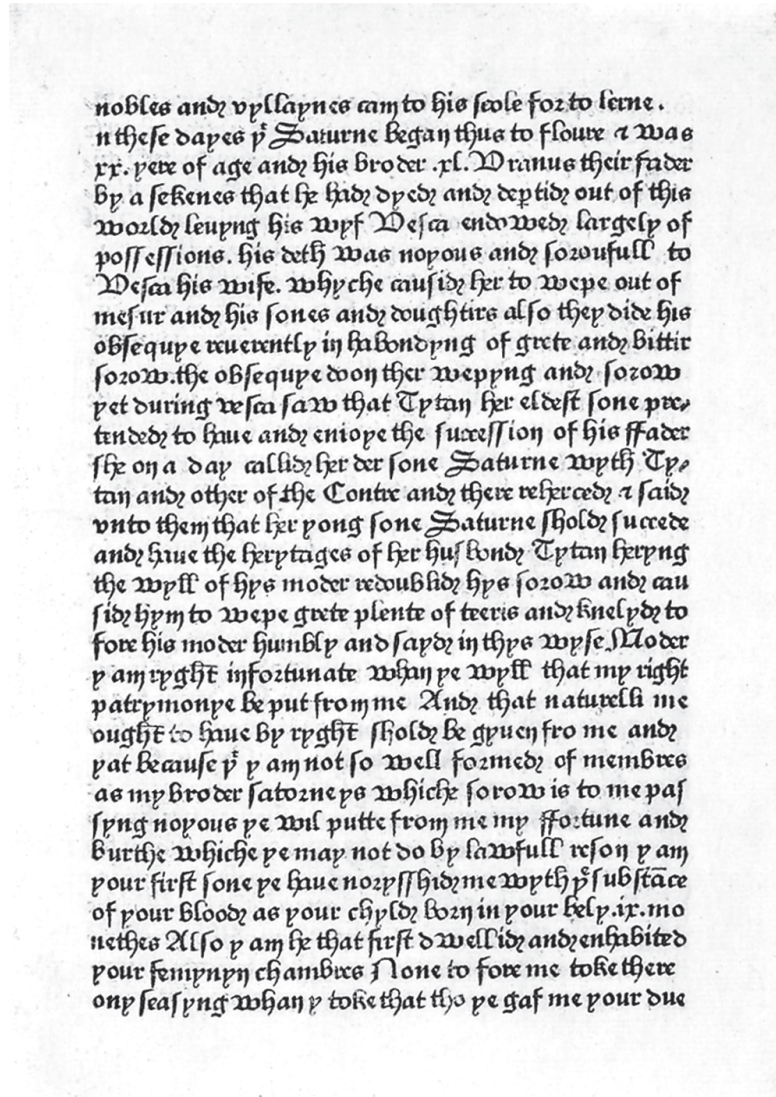 nobles and vyllaynes cam to his scole for to lerne.
n these dayes yͭ Saturne began thus to floure ⁊ was
xx. yere of age and his broder .xl. Vranus their fader
by a sekenes that he had dyed and deꝑtid out of this
world leuyng his wyf Vesca endowed largely of
possessions. his deth was noyous and soroufull to
Vesca his wife. whyche causid her to wepe out of
mesur and his sones and doughtirs also they dide his
obsequye reuerently in habondyng of grete and bittir
sorow.the obsequye doon ther wepyng and sorow
yet during vesca saw that Tytan her eldest sone pre⸗
tended to haue and enioye the succession of his ffader
she on a day callid her der sone Saturne wyth Ty⸗
tan and other of the Contre and there reherced ⁊ said
vnto them that her yong sone Saturne shold succede
and haue the herytages of her husbond Tytan heryng
the wyll of hys moder redoublid hys sorow and cau
sid hym to wepe grete plente of teeris and knelyd to
fore his moder humbly and sayd in thys wyse Moder
y am ryght infortunate whan ye wyll that my right
patrymonye be put from me And that naturelli me
ought to haue by ryght shold be gyuen fro me and
yat because yͭ y am not so well formed of membres
as my broder satorne ys whiche sorow is to me pas
syng noyous ye wil putte from me my ffortune and
burthe whiche ye may not do by lawfull reson y am
your first sone ye haue norysshid me wyth yͤ substāce
of your blood as your chyld born in your bely.ix.mo
nethes Also y am he that first dwellid and enhabited
your femynyn chambres None to fore me toke there
ony seasyng whan y toke that tho ye gaf me your due